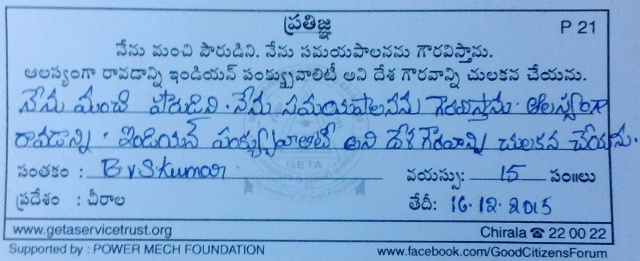 ప్రతిజ్ఞ P 21
నేను మంచి పౌరుడిని. నేను సమయపాలనను గౌరవిస్తాను.
ఆలస్యంగా రావడాన్ని ఇండియన్ పంక్చువాలిటీ అని దేశ గౌరవాన్ని చులకన చేయను.
నేను మంచి పౌరుడిని. నేను సమయపాలనను గౌరవిస్తాను. ఆలస్యంగా
రావడాన్ని. ఇండియన్ పంక్చువాలిటీ అని దేశ గౌరవాన్ని చులకన చేయను.
సంతకం : B v S.kumar వయస్సు: 15 సం॥లు
ప్రదేశం : చీరాల తేదీ: 16.12.2015
www.getaservicetrust.org Chirala ☎ 22 00 22
Supported by : POWER MECH FOUNDATION www.facebook.com/GoodCitizensForum
GETA